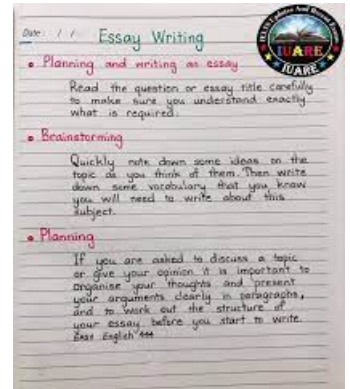 Date: / /
Essay Writing
IUARE
IUARE
• Planning and writing an essay
Read the question or essay title carefully
to make sure you understand exactly
what is required.
• Brainstorming
Quickly note down some ideas on the
topic as you think of them. Then write
down some vocabulary that you know
you will need to write about this
subject.
• Planning
If you are asked to discuss a topic
or give your opinion it is important to
organise your thoughts and present
your arguments clearly in paragraphs,
and to work out the structure of
your essay before you start to write.
Easy English